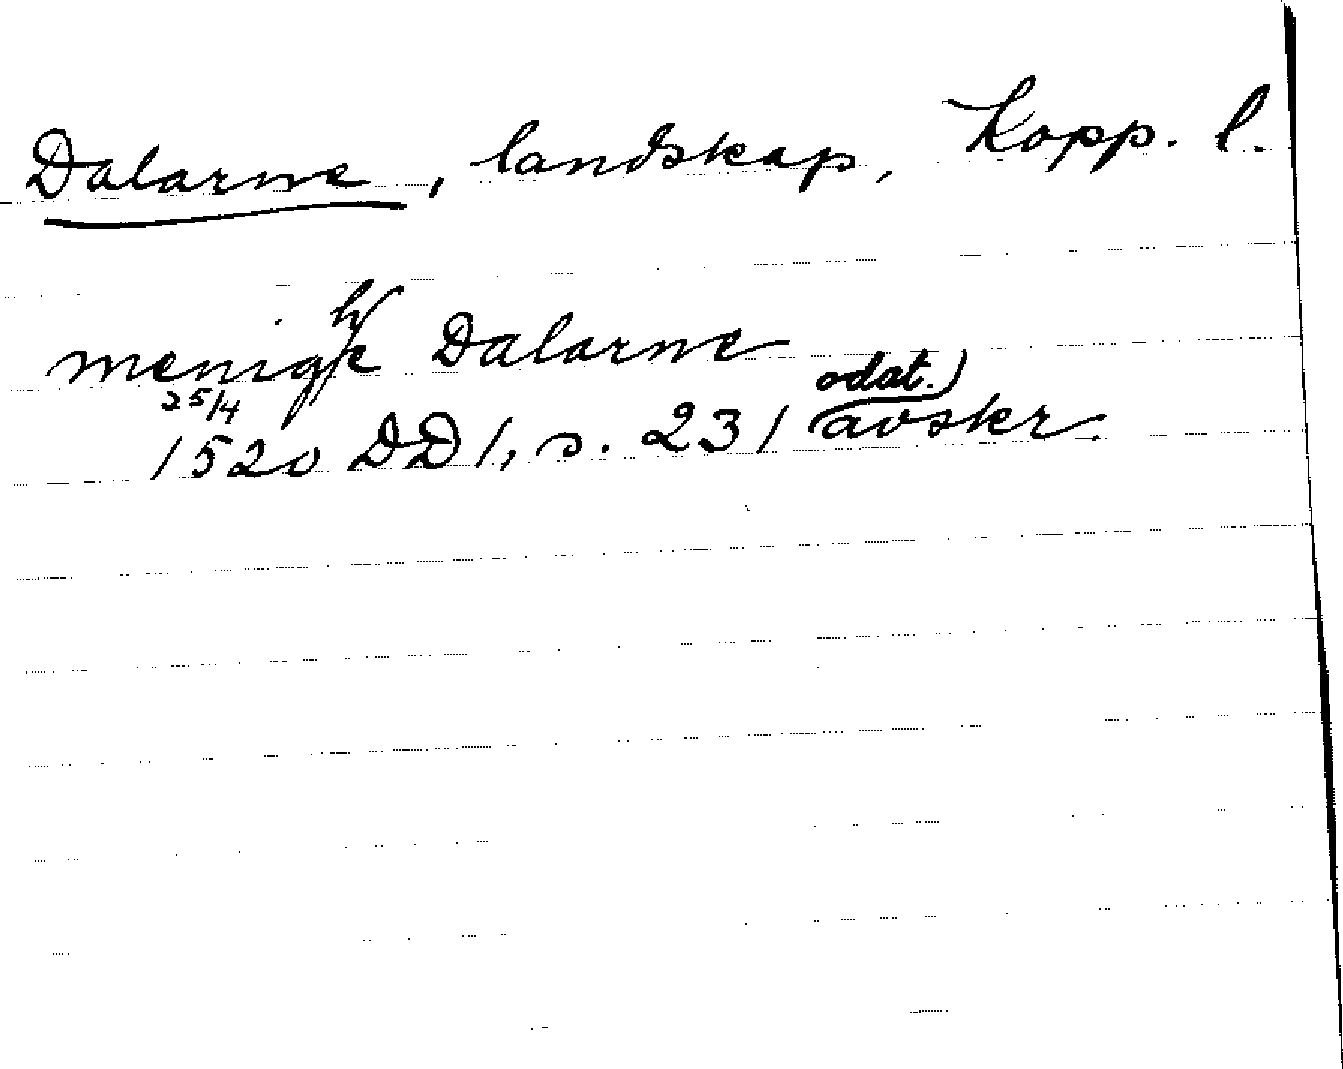 Dalarne, landskap, Kopp. l.
menighe Dalarne
25/4 odat.)
1520 DD 1, s. 231 avskr.